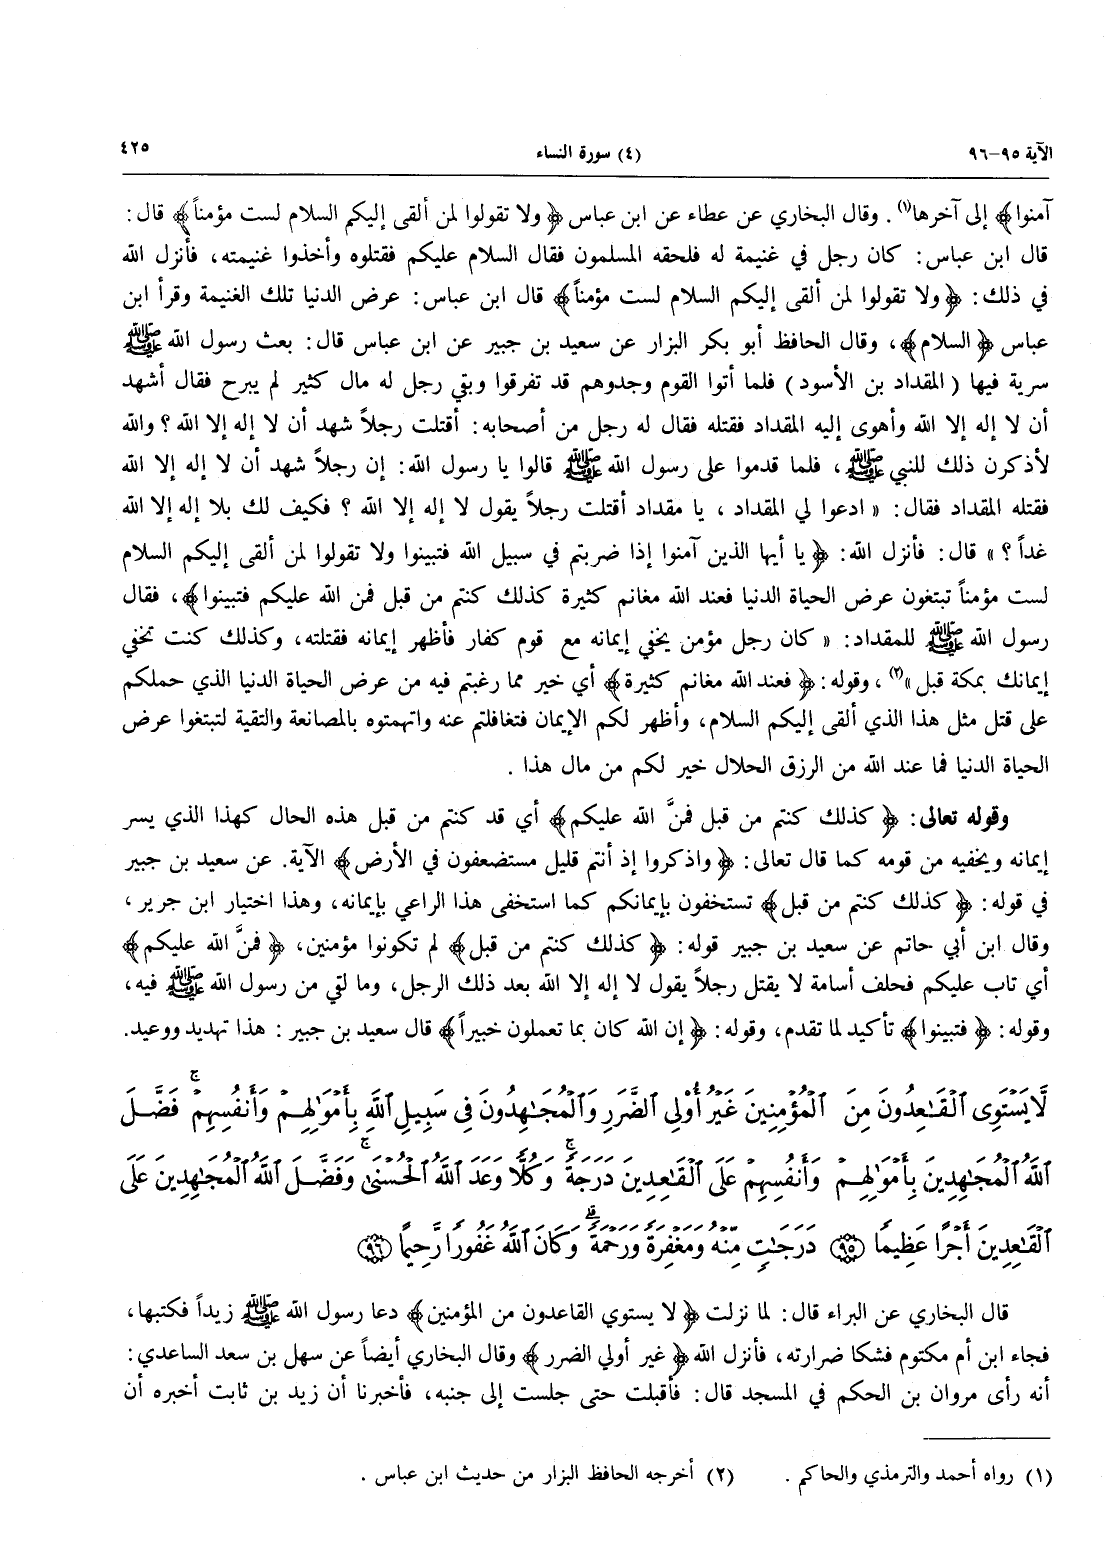 الآية ٩٥-٩٦ (٤) سورة النساء ٤٢٥
آمنوا﴾ إلى آخرها(١). وقال البخاري عن عطاء عن ابن عباس ﴿ولا تقولوا لمن ألقى إليكم السلام لست مؤمناً﴾ قال:
قال ابن عباس: كان رجل في غنيمة له فلحقه المسلمون فقال السلام عليكم فقتلوه وأخذوا غنيمته، فأنزل الله
في ذلك: ﴿ولا تقولوا لمن ألقى إليكم السلام لست مؤمناً﴾ قال ابن عباس: عرض الدنيا تلك الغنيمة وقرأ ابن
عباس ﴿السلام﴾، وقال الحافظ أبو بكر البزار عن سعيد بن جبير عن ابن عباس قال: بعث رسول الله ﷺ
سرية فيها (المقداد بن الأسود) فلما أتوا القوم وجدوهم قد تفرقوا وبقي رجل له مال كثير لم يبرح فقال أشهد
أن لا إله إلا الله وأهوى إليه المقداد فقتله فقال له رجل من أصحابه: أقتلت رجلاً شهد أن لا إله إلا الله؟ والله
لأذكرن ذلك للنبي ﷺ، فلما قدموا على رسول الله ﷺ قالوا يا رسول الله: إن رجلاً شهد أن لا إله إلا الله
فقتله المقداد فقال: « ادعوا لي المقداد ، يا مقداد أقتلت رجلاً يقول لا إله إلا الله ؟ فكيف لك بلا إله إلا الله
غداً؟ » قال: فأنزل الله: ﴿يا أيها الذين آمنوا إذا ضربتم في سبيل الله فتبينوا ولا تقولوا لمن ألقى إليكم السلام
لست مؤمناً تبتغون عرض الحياة الدنيا فعند الله مغانم كثيرة كذلك كنتم من قبل فمن الله عليكم فتبينوا﴾، فقال
رسول الله ﷺ للمقداد: « كان رجل مؤمن يخفي إيمانه مع قوم كفار فأظهر إيمانه فقتلته، وكذلك كنت تخفي
إيمانك بمكة قبل »(٢)، وقوله: ﴿فعند الله مغانم كثيرة﴾ أي خير مما رغبتم فيه من عرض الحياة الدنيا الذي حملكم
على قتل مثل هذا الذي ألقى إليكم السلام، وأظهر لكم الإيمان فتغافلتم عنه واتهمتوه بالمصانعة والتقية لتبتغوا عرض
الحياة الدنيا فما عند الله من الرزق الحلال خير لكم من مال هذا .
وقوله تعالى: ﴿كذلك كنتم من قبل فمنَّ الله عليكم﴾ أي قد كنتم من قبل هذه الحال كهذا الذي يسر
إيمانه ويخفيه من قومه كما قال تعالى: ﴿واذكروا إذ أنتم قليل مستضعفون في الأرض﴾ الآية. عن سعيد بن جبير
في قوله: ﴿كذلك كنتم من قبل﴾ تستخفون بإيمانكم كما استخفى هذا الراعي بإيمانه، وهذا اختيار ابن جرير،
وقال ابن أبي حاتم عن سعيد بن جبير قوله: ﴿كذلك كنتم من قبل﴾ لم تكونوا مؤمنين، ﴿فمنَّ الله عليكم﴾
أي تاب عليكم فحلف أسامة لا يقتل رجلاً يقول لا إله إلا الله بعد ذلك الرجل، وما لقي من رسول الله ﷺ فيه،
وقوله: ﴿فتبينوا﴾ تأكيد لما تقدم، وقوله: ﴿إن الله كان بما تعملون خبيراً﴾ قال سعيد بن جبير : هذا تهديد ووعيد.
لَّا يَسْتَوِى ٱلْقَـٰعِدُونَ مِنَ ٱلْمُؤْمِنِينَ غَيْرُ أُوْلِى ٱلضَّرَرِ وَٱلْمُجَـٰهِدُونَ فِى سَبِيلِ ٱللَّهِ بِأَمْوَٰلِهِمْ وَأَنفُسِهِمْ ۚ فَضَّلَ
ٱللَّهُ ٱلْمُجَـٰهِدِينَ بِأَمْوَٰلِهِمْ وَأَنفُسِهِمْ عَلَى ٱلْقَـٰعِدِينَ دَرَجَةً ۚ وَكُلًّا وَعَدَ ٱللَّهُ ٱلْحُسْنَىٰ ۚ وَفَضَّلَ ٱللَّهُ ٱلْمُجَـٰهِدِينَ عَلَى
ٱلْقَـٰعِدِينَ أَجْرًا عَظِيمًا ﴿٩٥﴾ دَرَجَـٰتٍ مِّنْهُ وَمَغْفِرَةً وَرَحْمَةً ۚ وَكَانَ ٱللَّهُ غَفُورًا رَّحِيمًا ﴿٩٦﴾
قال البخاري عن البراء قال: لما نزلت ﴿لا يستوي القاعدون من المؤمنين﴾ دعا رسول الله ﷺ زيداً فكتبها،
فجاء ابن أم مكتوم فشكا ضرارته، فأنزل الله ﴿غير أولي الضرر﴾ وقال البخاري أيضاً عن سهل بن سعد الساعدي:
أنه رأى مروان بن الحكم في المسجد قال: فأقبلت حتى جلست إلى جنبه، فأخبرنا أن زيد بن ثابت أخبره أن
(١) رواه أحمد والترمذي والحاكم . (٢) أخرجه الحافظ البزار من حديث ابن عباس .